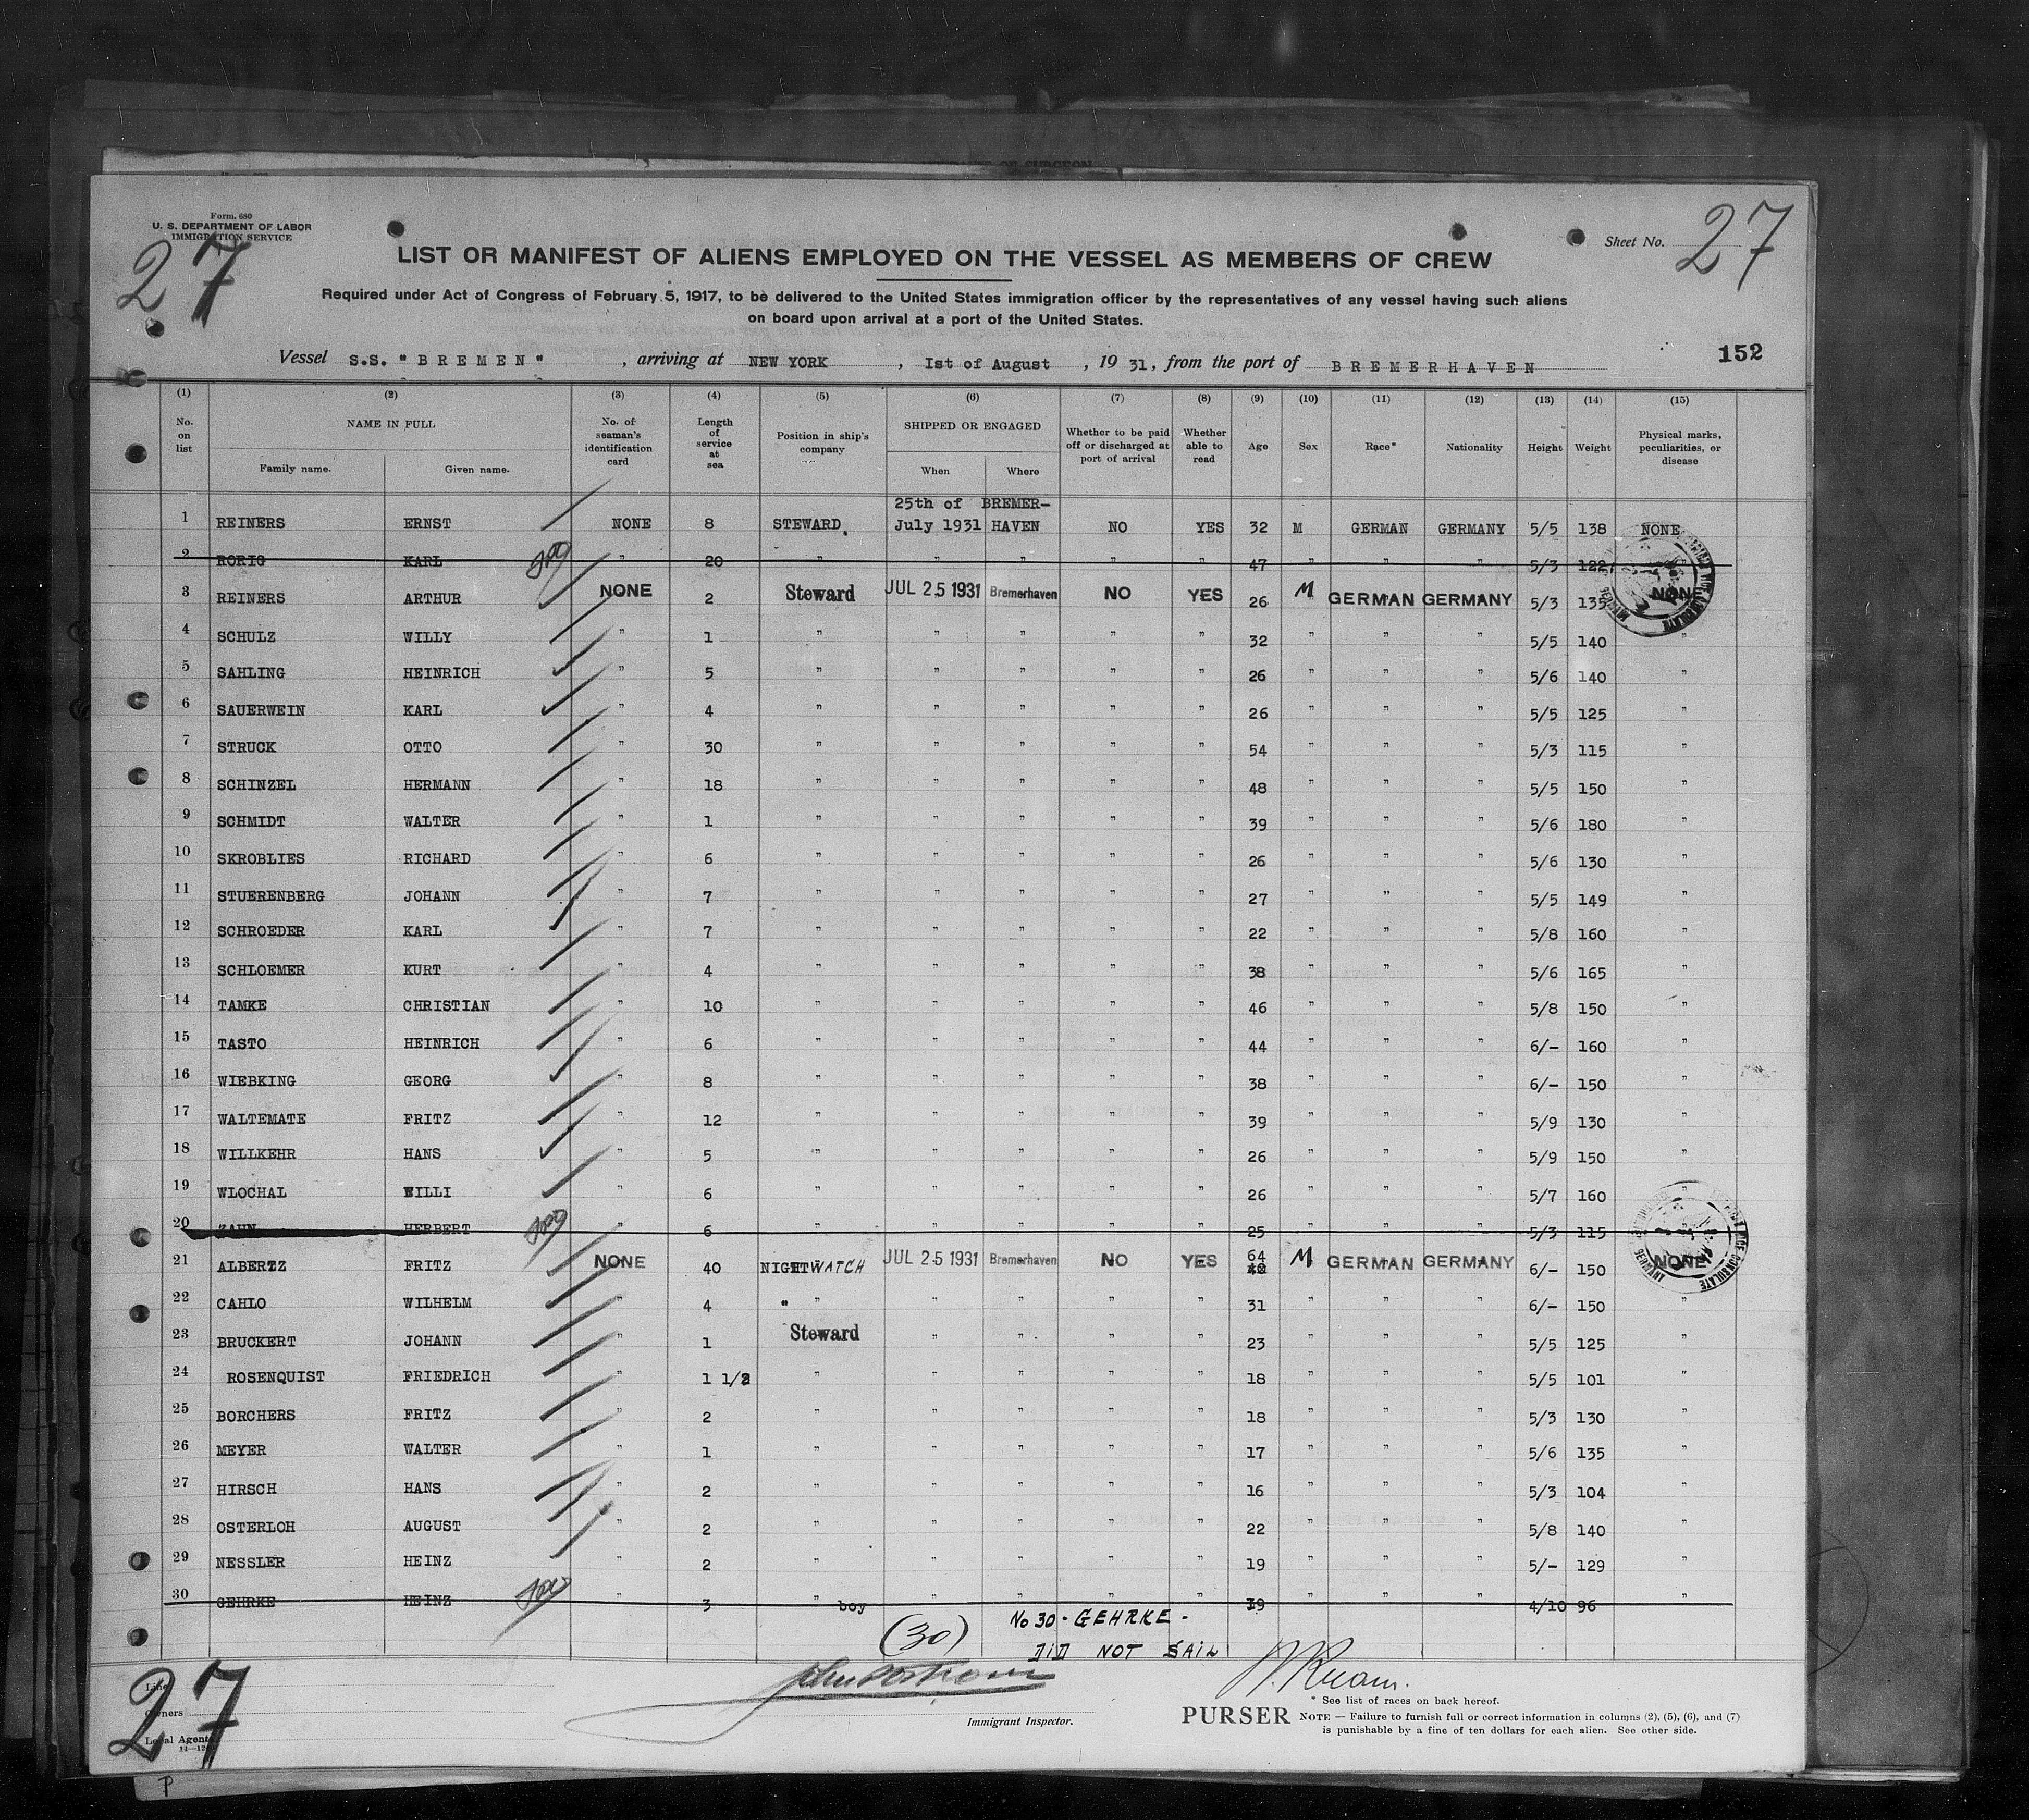 Form. 680
U. S. DEPARTMENT OF LABOR
IMMIGRATION SERVICE
27
Sheet No. 27
LIST OR MANIFEST OF ALIENS EMPLOYED ON THE VESSEL AS MEMBERS OF CREW
Required under Act of Congress of February 5, 1917, to be delivered to the United States immigration officer by the representatives of any vessel having such aliens
on board upon arrival at a port of the United States.
Vessel S.S. "BREMEN", arriving at NEW YORK, Ist of August, 1931, from the port of BREMERHAVEN
152
(1) (2) (3) (4) (5) (6) (7) (8) (9) (10) (11) (12) (13) (14) (15)
No. on list NAME IN FULL Family name. Given name. No. of seaman's identification card Length of service at sea Position in ship's company SHIPPED OR ENGAGED When Where Whether to be paid off or discharged at port of arrival Whether able to read Age Sex Race* Nationality Height Weight Physical marks, peculiarities, or disease
1 REINERS ERNST NONE 8 STEWARD. 25th of July 1931 BREMER-HAVEN NO YES 32 M GERMAN GERMANY 5/5 138 NONE
2 RORIG KARL " 20 " " " " " 47 " " " 5/3 122
3 REINERS ARTHUR NONE 2 Steward JUL 25 1931 Bremerhaven NO YES 26 M GERMAN GERMANY 5/3 135 NONE
4 SCHULZ WILLY " 1 " " " " " 32 " " " 5/5 140 "
5 SAHLING HEINRICH " 5 " " " " " 26 " " " 5/6 140 "
6 SAUERWEIN KARL " 4 " " " " " 26 " " " 5/5 125 "
7 STRUCK OTTO " 30 " " " " " 54 " " " 5/3 115 "
8 SCHINZEL HERMANN " 18 " " " " " 48 " " " 5/5 150 "
9 SCHMIDT WALTER " 1 " " " " " 39 " " " 5/6 180 "
10 SKROBLIES RICHARD " 6 " " " " " 26 " " " 5/6 130 "
11 STUERENBERG JOHANN " 7 " " " " " 27 " " " 5/5 149 "
12 SCHROEDER KARL " 7 " " " " " 22 " " " 5/8 160 "
13 SCHLOEMER KURT " 4 " " " " " 38 " " " 5/6 165 "
14 TAMKE CHRISTIAN " 10 " " " " " 46 " " " 5/8 150 "
15 TASTO HEINRICH " 6 " " " " " 44 " " " 6/- 160 "
16 WIEBKING GEORG " 8 " " " " " 38 " " " 6/- 150 "
17 WALTEMATE FRITZ " 12 " " " " " 39 " " " 5/9 130 "
18 WILLKEHR HANS " 5 " " " " " 26 " " " 5/9 150 "
19 WLOCHAL WILLI " 6 " " " " " 26 " " " 5/7 160 "
20 ZAHN HERBERT " 6 " " " " " 25 " " " 5/3 115
21 ALBERTZ FRITZ NONE 40 NIGHTWATCH JUL 25 1931 Bremerhaven NO YES 64 M GERMAN GERMANY 6/- 150 NONE
22 CAHLO WILHELM " 4 " " " " " " 31 " " " 6/- 150 "
23 BRUCKERT JOHANN " 1 Steward " " " " 23 " " " 5/5 125 "
24 ROSENQUIST FRIEDRICH " 1 1/2 " " " " " 18 " " " 5/5 101 "
25 BORCHERS FRITZ " 2 " " " " " 18 " " " 5/3 130 "
26 MEYER WALTER " 1 " " " " " 17 " " " 5/6 135 "
27 HIRSCH HANS " 2 " " " " " 16 " " " 5/3 104 "
28 OSTERLOH AUGUST " 2 " " " " " 22 " " " 5/8 140 "
29 NESSLER HEINZ " 2 " " " " " 19 " " " 5/- 129 "
30 GEHRKE HEINZ " 3 " boy " " " " 19 " " " 4/10 96 "
(30) No 30 - GEHRKE -
DID NOT SAIL
27
Line
Owners
Local Agents
Immigrant Inspector.
PURSER
* See list of races on back hereof.
NOTE — Failure to furnish full or correct information in columns (2), (5), (6), and (7)
is punishable by a fine of ten dollars for each alien. See other side.
P